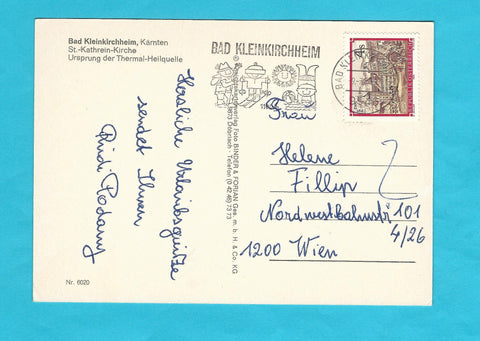 Bad Kleinkirchheim, Kärnten
St.-Kathrein-Kirche
Ursprung der Thermal-Heilquelle
Herzliche Urlaubsgrüße
sendet Ihnen
Rudi
Nr. 6020
Foto BINDER & FORJAN Ges. m. b. H. & Co. KG
Telefon (0 42 48)
BAD KLEINKIRCHHEIM
Frau
Helene
Fillip
Nordwestbahnstr 101
4/26
1200 Wien